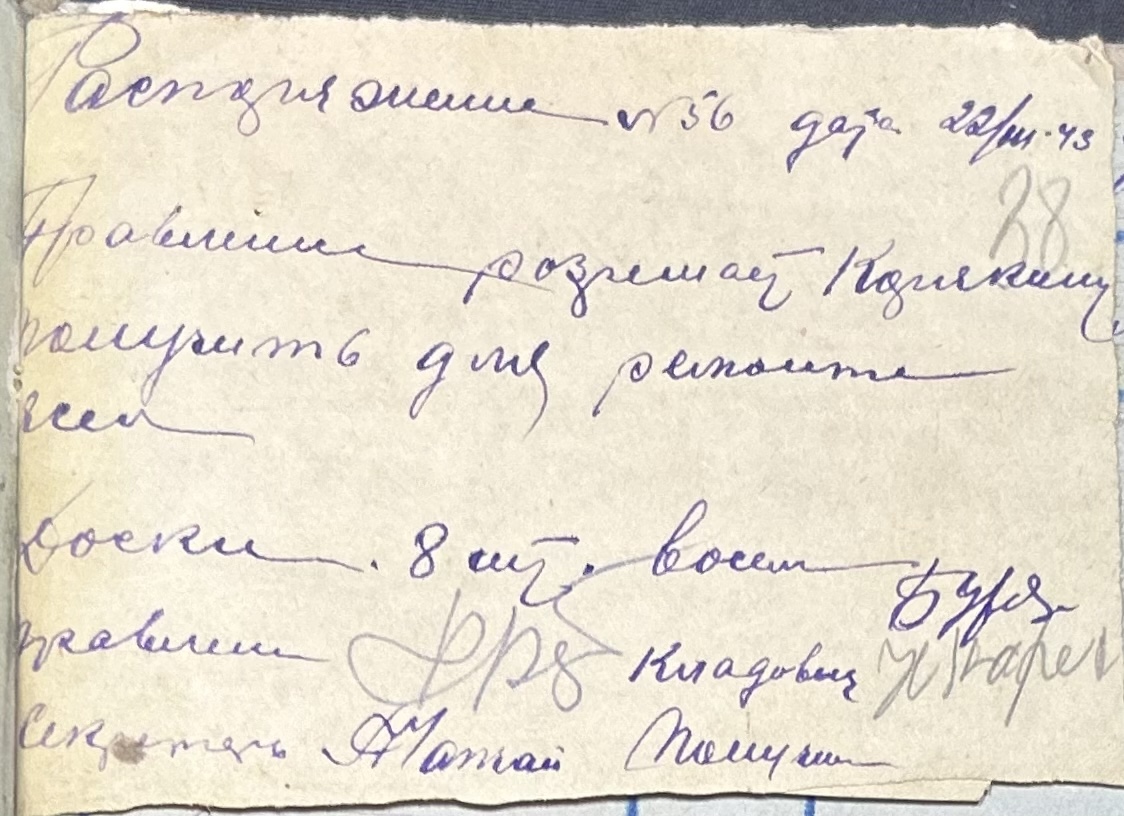 Распоряжение №56 дата 22/III-43
28
Правление розришаит Корякину
получить для ремонта
ясел
Доски. 8 шт. восем
правлени Кладовщ
Секретарь Получил